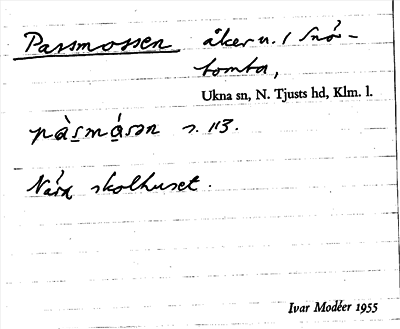 Passmossen åker u. / Snö-
tomta,
Ukna sn, N. Tjusts hd, Klm. l.
pàs̲má̲sən s. 113.
Nära skolhuset.
Ivar Modéer 1955